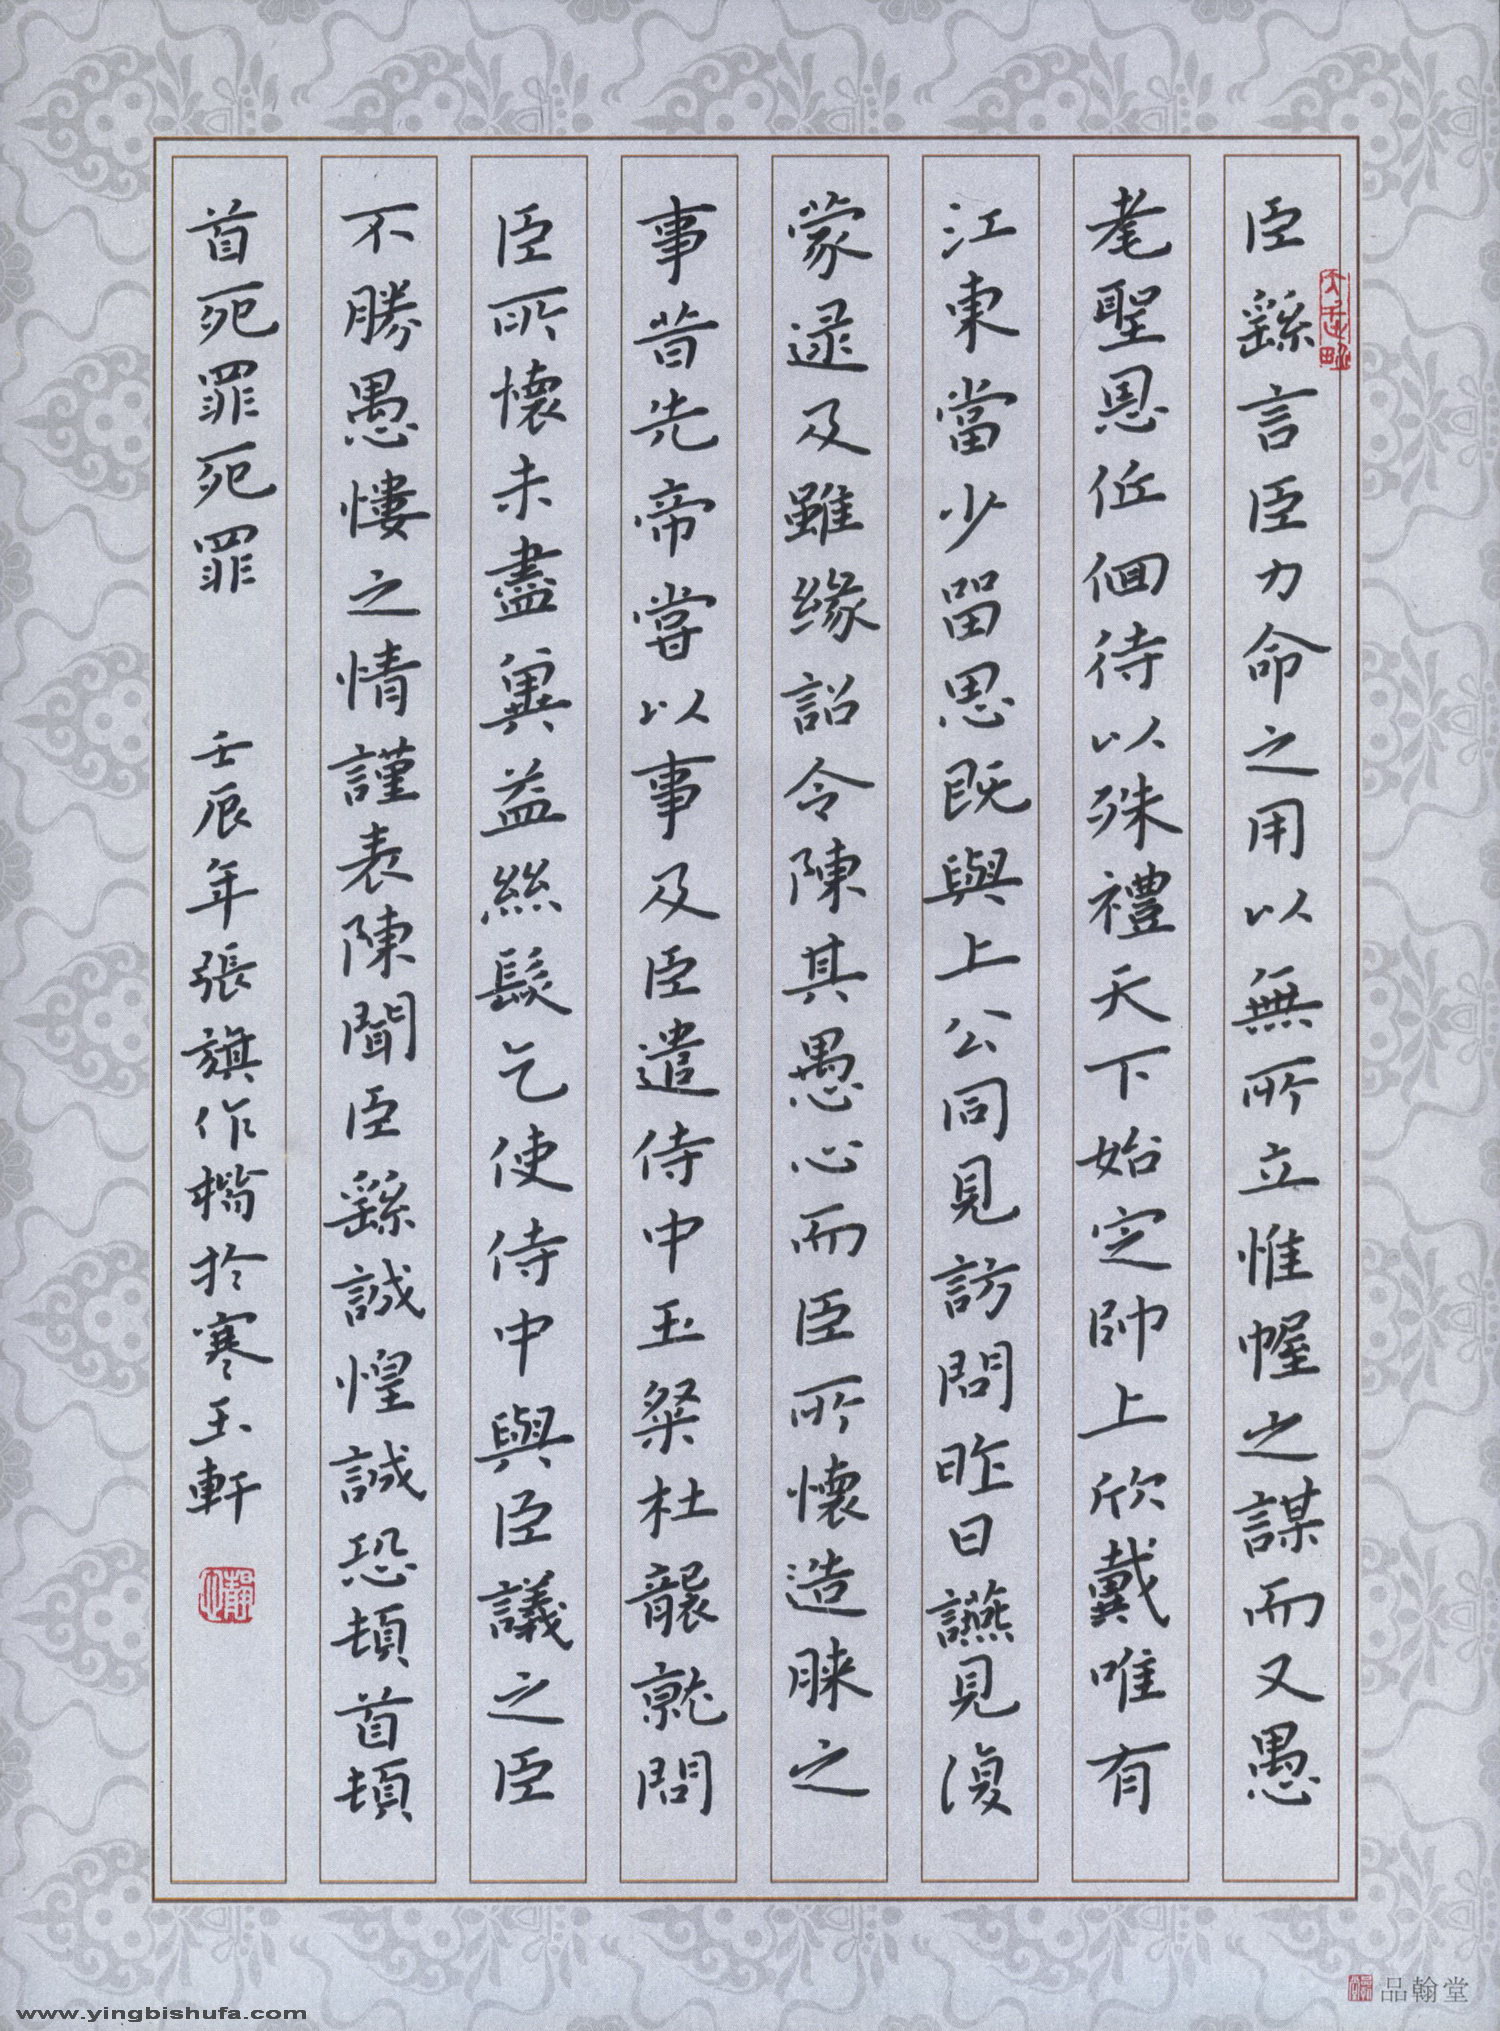 臣繇言臣力命之用以無所立惟幄之謀而又愚
耄聖恩低佪待以殊禮天下始定帥上欣戴唯有
江東當少留思既與上公同見訪問昨日讌見復
蒙逮及雖緣詔令陳其愚心而臣所懷造膝之
事昔先帝嘗以事及臣遣侍中玉粲杜襲就問
臣所懷未盡冀益絲髮乞使侍中與臣議之臣
不勝愚慺之情謹表陳聞臣繇誠惶誠恐頓首頓
首死罪死罪 壬辰年張旗作於寒玉軒
品翰堂
www.yingbishufa.com